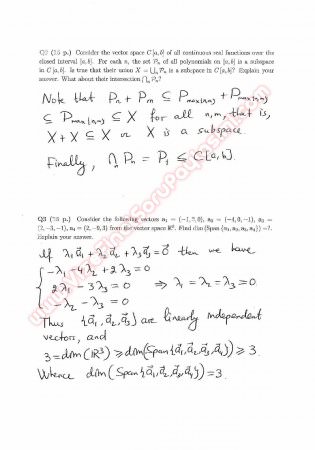 Q2 (25 p.) Consider the vector space C[a, b] of all continuous real functions over the
closed interval [a, b]. For each n, the set Pₙ of all polynomials on [a, b] is a subspace
in C[a, b]. Is true that their union X = ⋃ₙ Pₙ is a subspace in C[a, b]? Explain your
answer. What about their intersection ⋂ₙ Pₙ?
Note that Pₙ + Pₘ ⊆ P_max{n,m} + P_max{n,m}
⊆ P_max{n,m} ⊆ X for all n, m, that is,
X + X ⊆ X or X is a subspace
Finally, ⋂ Pₙ = P₁ ⊆ C[a, b].
Q3 (25 p.) Consider the following vectors a₁ = (-1, 2, 0), a₂ = (-4, 0, -1), a₃ =
(2, -3, -1), a₄ = (2, -9, 3) from the vector space ℝ³. Find dim (Span {a₁, a₂, a₃, a₄}) =?.
Explain your answer.
If λ₁a⃗₁ + λ₂a⃗₂ + λ₃a⃗₃ = 0⃗ then we have
-λ₁ - 4λ₂ + 2λ₃ = 0
2λ₁ - 3λ₃ = 0 ⇒ λ₁ = λ₂ = λ₃ = 0
-λ₂ - λ₃ = 0
Thus {a⃗₁, a⃗₂, a⃗₃} are linearly independent
vectors, and
3 = dim(ℝ³) ≥ dim(Span{a⃗₁, a⃗₂, a⃗₃, a⃗₄}) ≥ 3.
Whence dim(Span{a⃗₁, a⃗₂, a⃗₃, a⃗₄}) = 3.